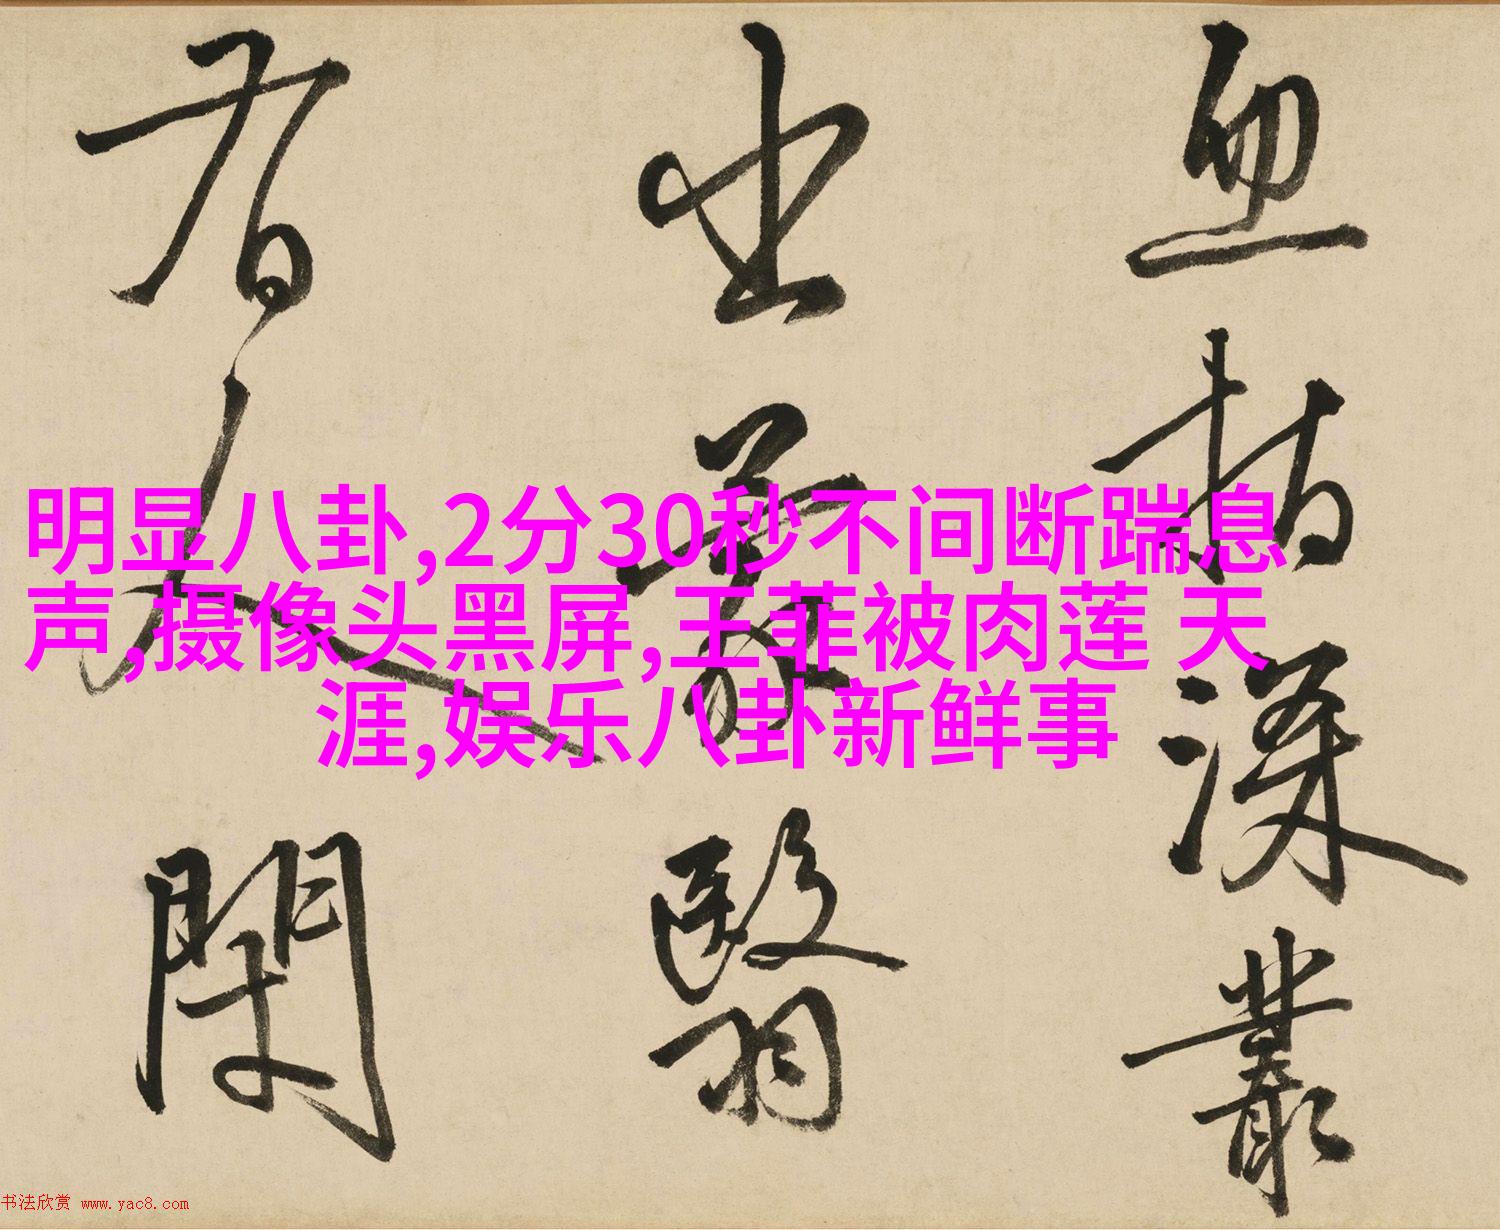 指深叢
出翳
人閑
明显八卦,2分30秒不间断踹息
声,摄像头黑屏,王菲被肉莲 天
涯,娱乐八卦新鲜事
书法欣赏 www.yac8.com